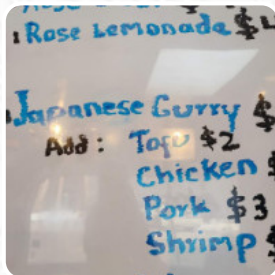 Rose Lemonade $4
Japanese Curry $
Add: Tofu $2
Chicken $
Pork $3
Shrimp $